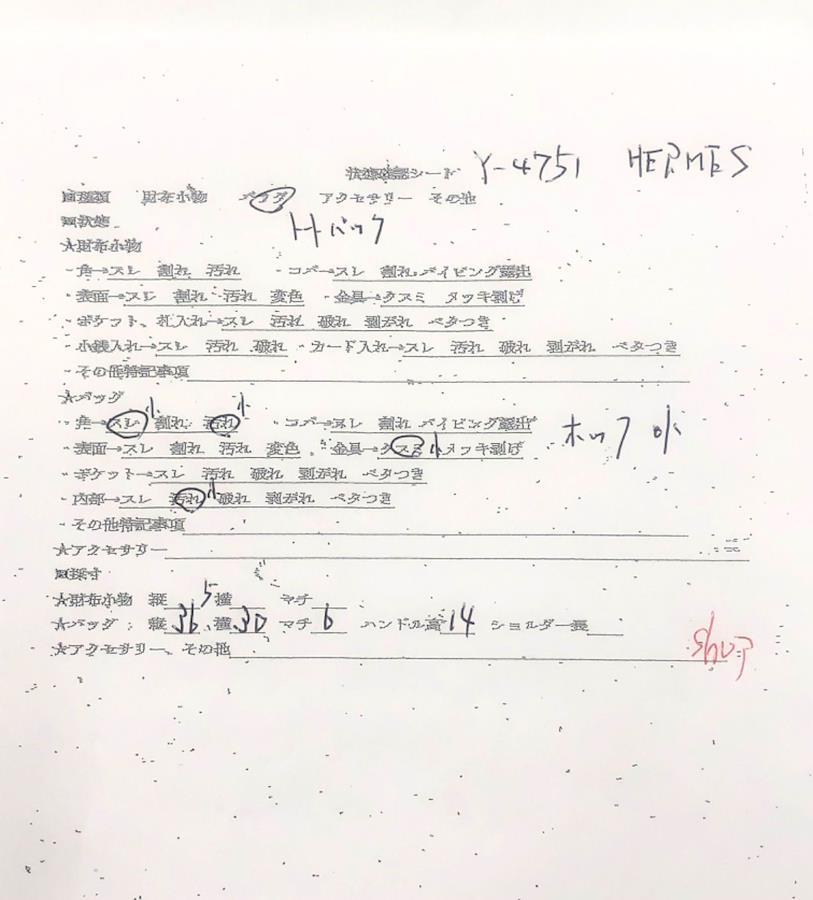 状態確認シート Y-4751 HERMES
■種類 財布小物 バッグ アクセサリー その他
■状態 Hバック
★財布小物
・角→スレ 割れ 汚れ ・コバ→スレ 割れ パイピング露出
・表面→スレ 割れ 汚れ 変色 ・金具→クスミ メッキ剥げ
・ポケット、札入れ→スレ 汚れ 破れ 剥がれ ベタつき
・小銭入れ→スレ 汚れ 破れ ・カード入れ→スレ 汚れ 破れ 剥がれ ベタつき
・その他特記事項
★バッグ
・角→スレ小 割れ 汚れ小 ・コバ→スレ 割れ パイピング露出
・表面→スレ 割れ 汚れ 変色 ・金具→クスミ小 メッキ剥げ ホック
・ポケット→スレ 汚れ 破れ 剥がれ ベタつき
・内部→スレ 汚れ小 破れ 剥がれ ベタつき
・その他特記事項
★アクセサリー
■採寸
★財布小物 縦 横 マチ
★バッグ: 縦 36.5 横 30 マチ 6 ハンドル高 14 ショルダー長
★アクセサリー、その他